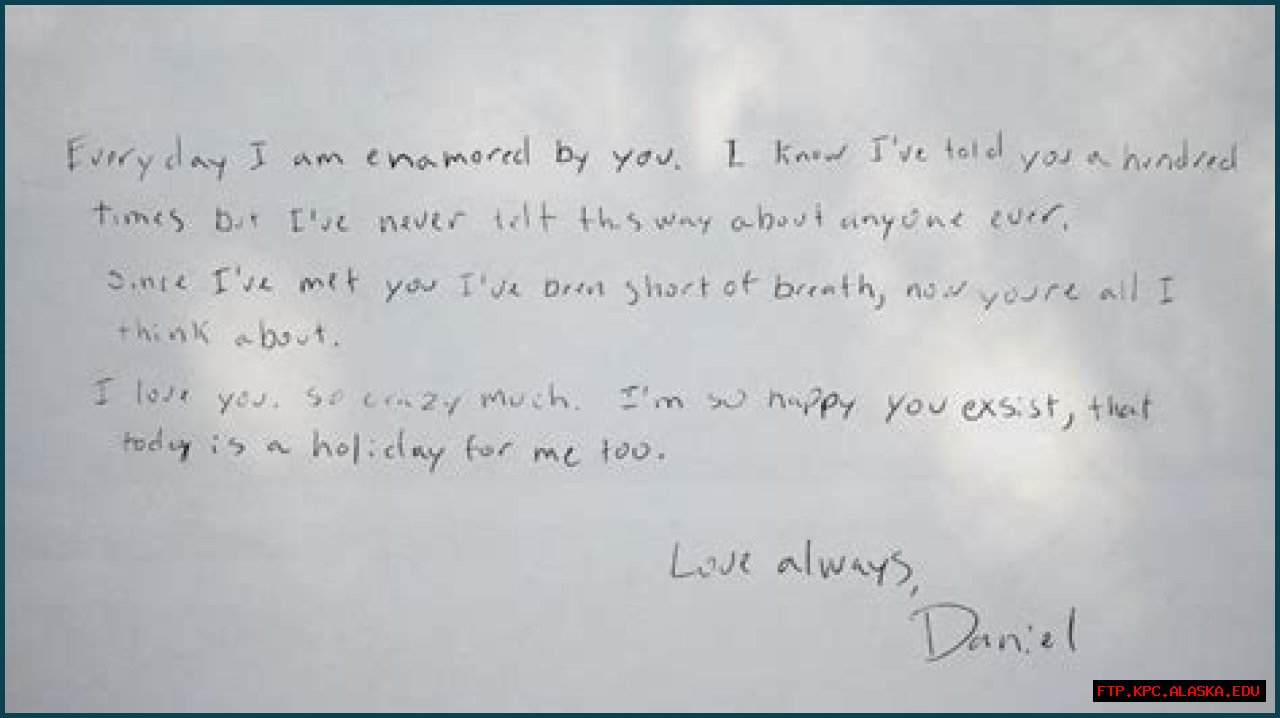 Everyday I am enamored by you. I know I've told you a hundred
times but I've never felt this way about anyone ever.
Since I've met you I've been short of breath, now you're all I
think about.
I love you. So crazy much. I'm so happy you exsist, that
today is a holiday for me too.
Love always,
Daniel
FTP.KPC.ALASKA.EDU